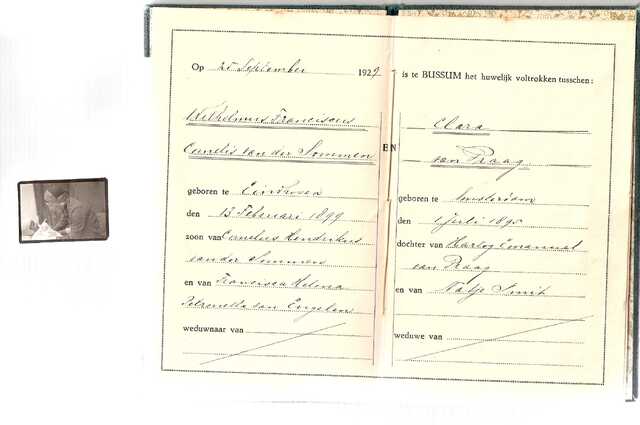 Op 25 September 1929 is te BUSSUM het huwelijk voltrokken tusschen:
Wilhelmus Franciscus
Cornelis van der Sommen
EN
Clara
van Praag
geboren te
den 13 Februari 1899
zoon van Cornelius Henderikus
van der Sommen
en van Francisca Helena
Petronella van Engelen
weduwnaar van
geboren te Amsterdam
den 1 Juli
dochter van Hartog Emanuel
van Praag
en van Naatje Smit
weduwe van